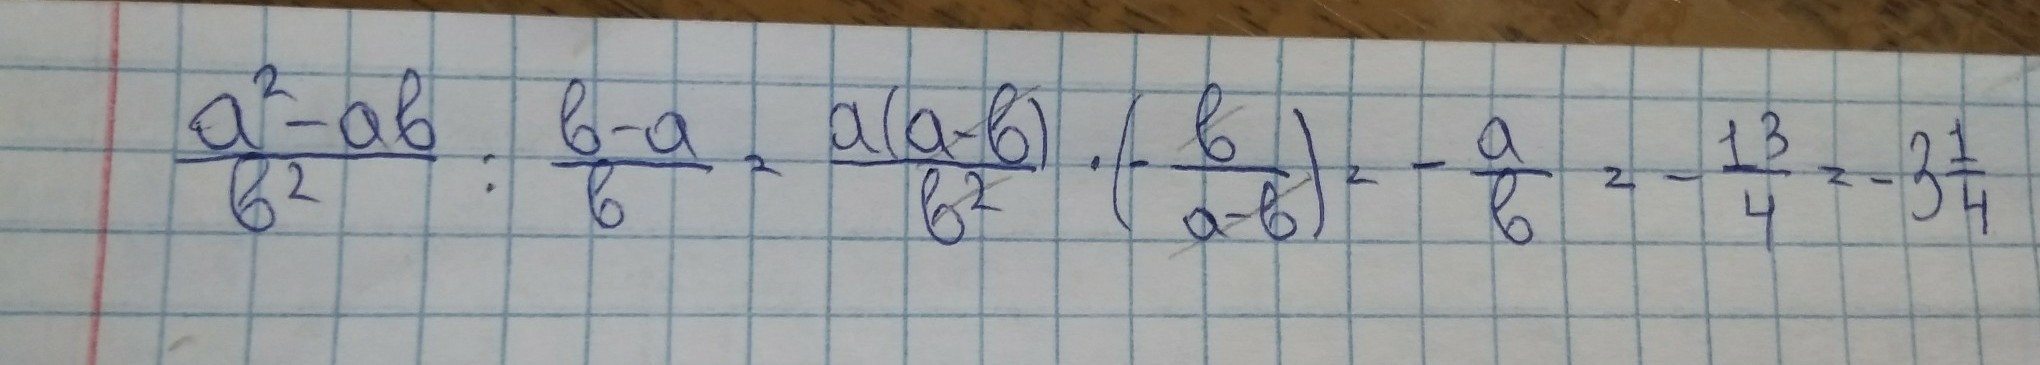 \frac{a^2-ab}{b^2} : \frac{b-a}{b} = \frac{a(a-b)}{b^2} \cdot \left(-\frac{b}{a-b}\right) = -\frac{a}{b} = -\frac{13}{4} = -3\frac{1}{4}